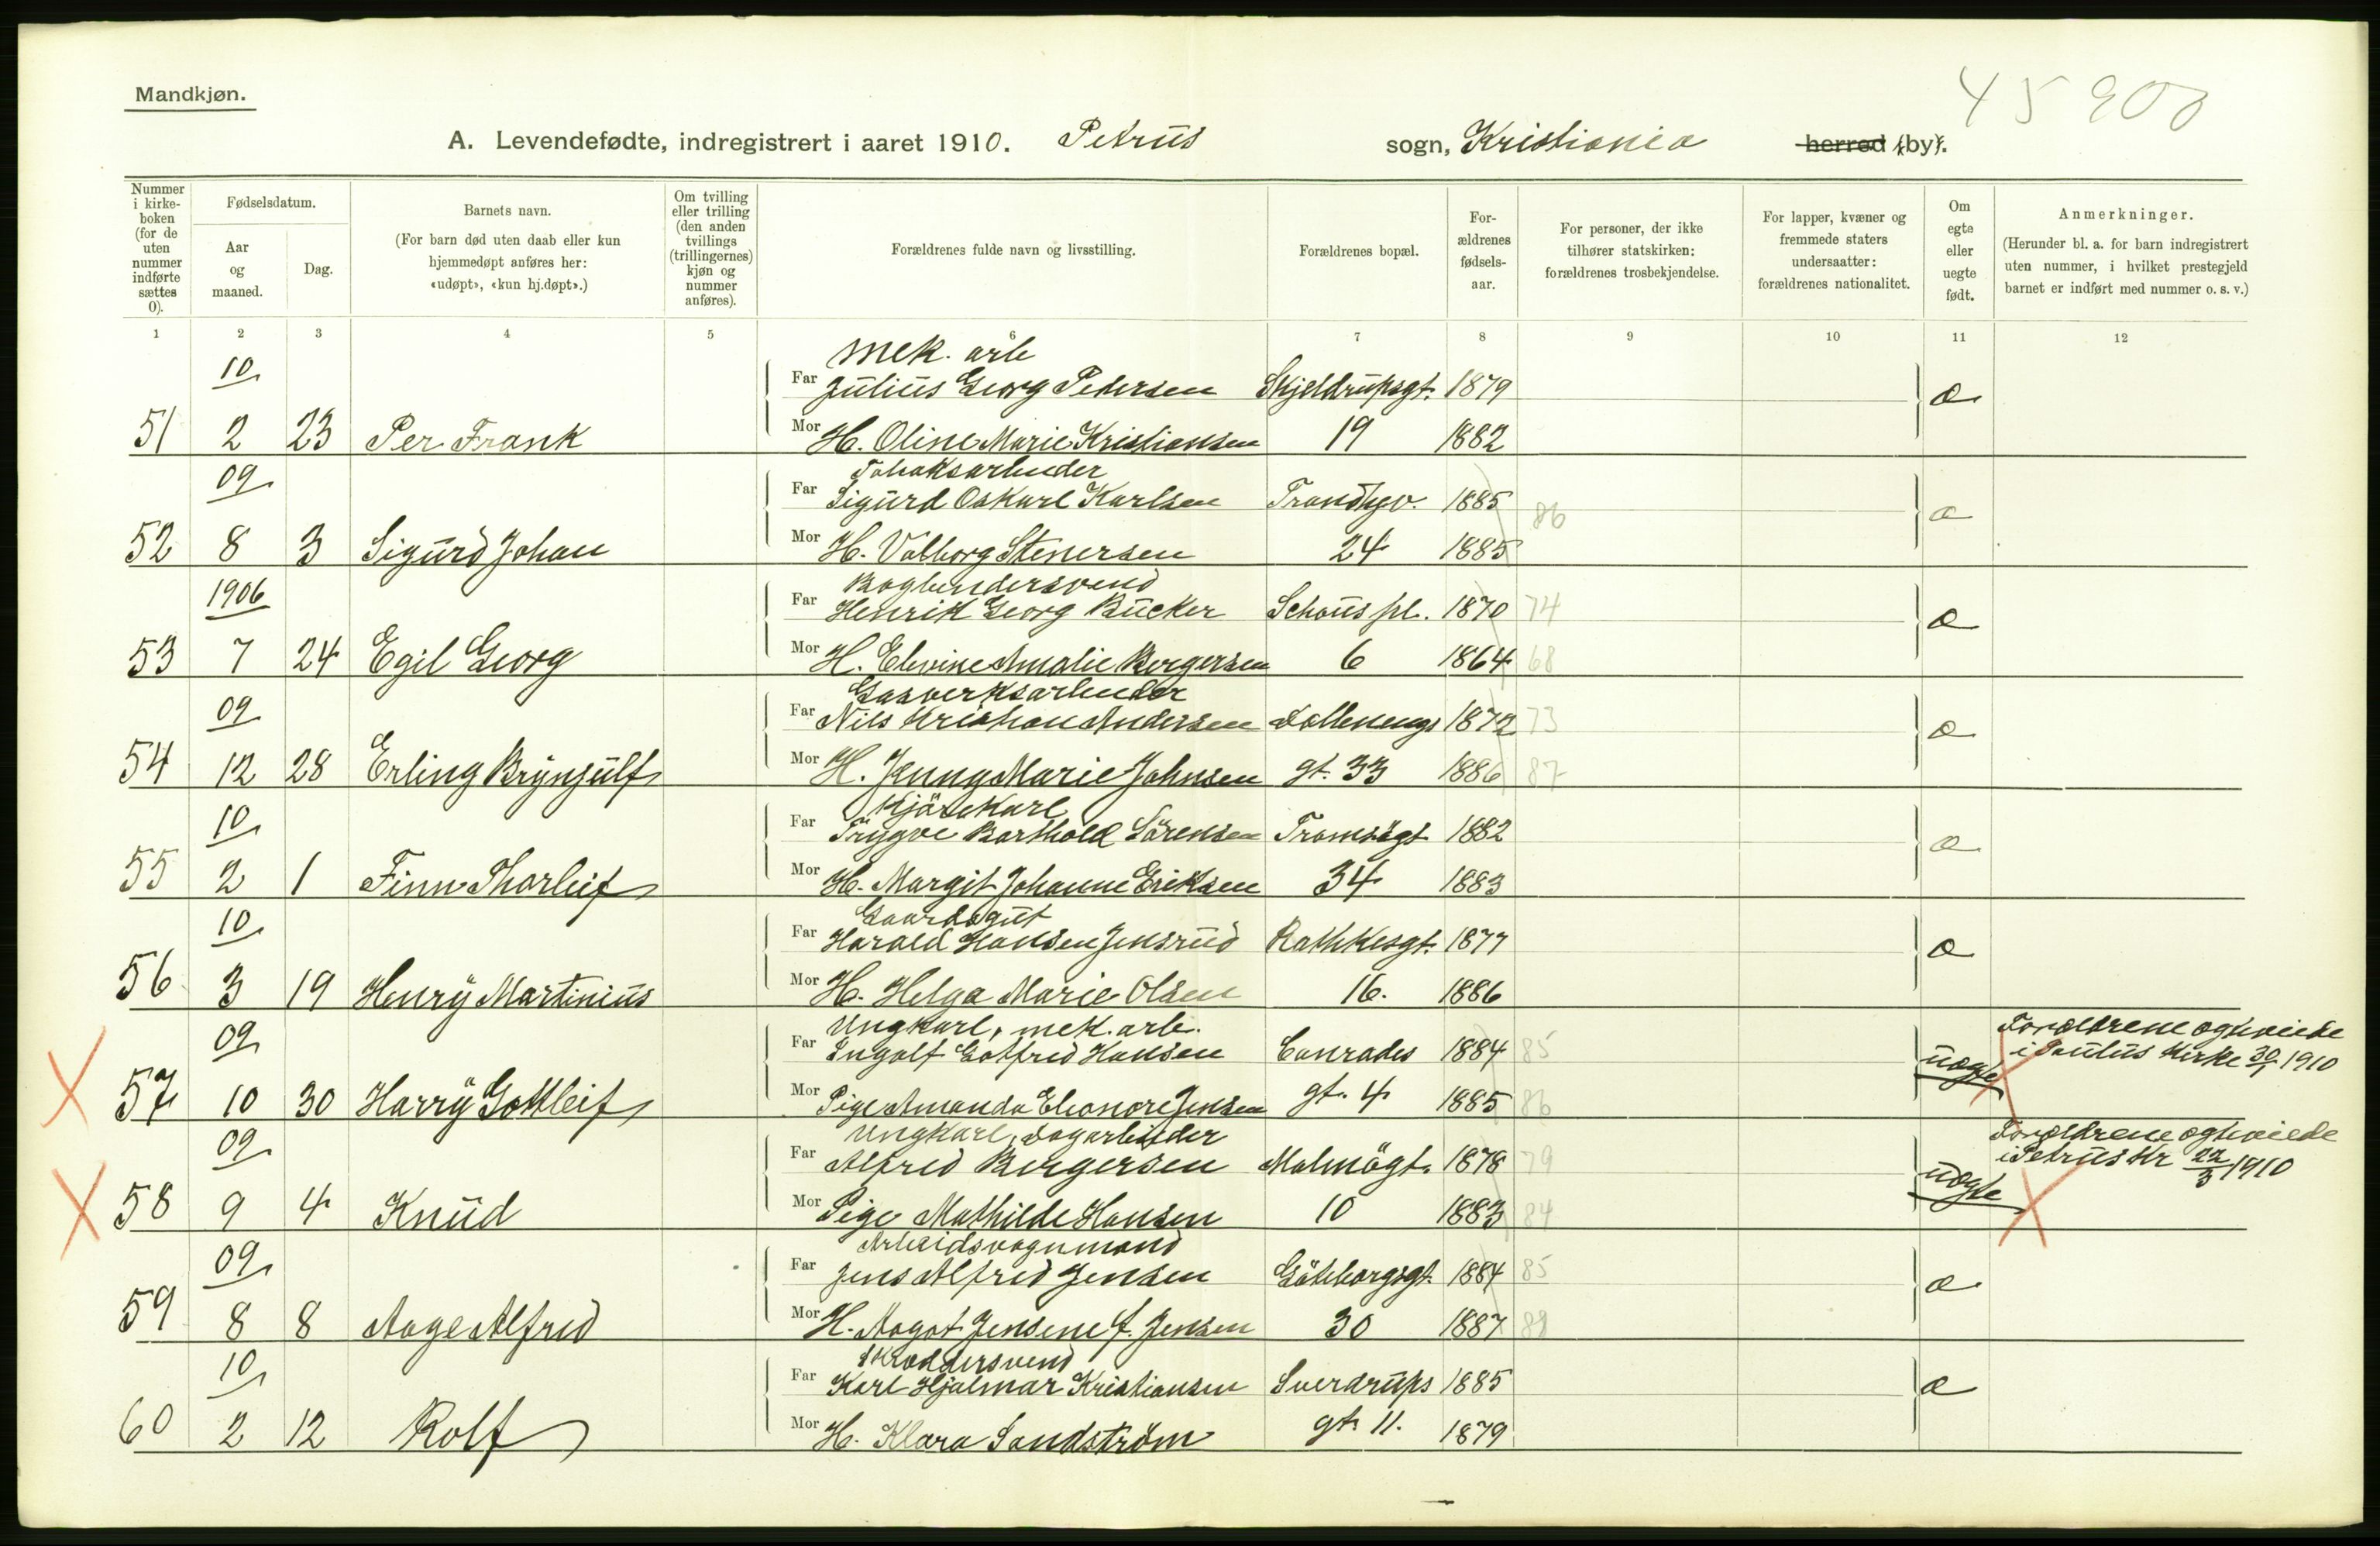 45 900
Mandkjøn.
A. Levendefødte, indregistrert i aaret 1910. Petrus sogn, Kristiania herred (by).
Nummer i kirkeboken (for de uten nummer indførte sættes 0).
Fødselsdatum.
Aar og maaned.
Dag.
Barnets navn.
(For barn død uten daab eller kun hjemmedøpt anføres her: «udøpt», «kun hj.døpt».)
Om tvilling eller trilling (den anden tvillings (trillingernes) kjøn og nummer anføres).
Forældrenes fulde navn og livsstilling.
Forældrenes bopæl.
For-ældrenes fødsels-aar.
For personer, der ikke tilhører statskirken: forældrenes trosbekjendelse.
For lapper, kvæner og fremmede staters undersaatter: forældrenes nationalitet.
Om egte eller uegte født.
Anmerkninger.
(Herunder bl. a. for barn indregistrert uten nummer, i hvilket prestegjeld barnet er indført med nummer o. s. v.)
1 2 3 4 5 6 7 8 9 10 11 12
10 Mek. arb
Far Julius Georg Petersen Skjeldrupsgt. 1879 a
51 2 23 Per Frank Mor H. Oline Marie Kristiansen 19 1882
09 Tobaksarbeider
Far Sigurd Oskarl Karlsen Trondhjv. 1885 86 a
52 8 3 Sigurd Johan Mor H. Valborg Stenersen 24 1885
1906 Bogbindersvend
Far Henrik Georg Bücker Schous pl. 1870 74 a
53 7 24 Egil Georg Mor H. Elevine Amalie Borgersen 6 1864 68
09 Gasverksarbeider
Far Nils Kristian Andersen Dælenengs 1872 73 a
54 12 28 Erling Brynjulf Mor H. Jenny Marie Johnsen gt. 33 1886 87
10 Kjørekarl
Far Trygve Barthold Sörensen Tromsögt 1882 a
55 2 1 Finn Thorleif Mor H. Margit Johanne Eriksen 34 1883
10 Gaardsgut
Far Harald Hansen Jensrud Rathkesgt. 1877 a
56 3 19 Henry Martinius Mor H. Helga Marie Olsen 16. 1886
09 Ungkarl, mek. arb.
Far Ingolf Gotfred Hansen Conrades 1884 85 uægte Foreldrene egteviede i Paulus Kirke 30/1 1910
57 10 30 Harry Gottleif Mor Pige Amanda Eleonore Jensen gt. 4 1885 86
09 Ungkarl, Dagarbeider
Far Alfred Bergersen Malmögt. 1878 79 uægte Foreldrene egteviede i Petrus Kr 22/3 1910
58 9 4 Knud Mor Pige Mathilde Hansen 10 1883 84
09 Arbeidsvognmand
Far Jens Alfred Jensen Göteborgsgt. 1884 85 a
59 8 8 Aage Alfred Mor H. Aagot Jensine f. Jensen 30 1887 88
10 Skræddersvend
Far Karl Hjalmar Kristiansen Sverdrups 1885 a
60 2 12 Rolf Mor H. Klara Sandström gt. 11. 1879